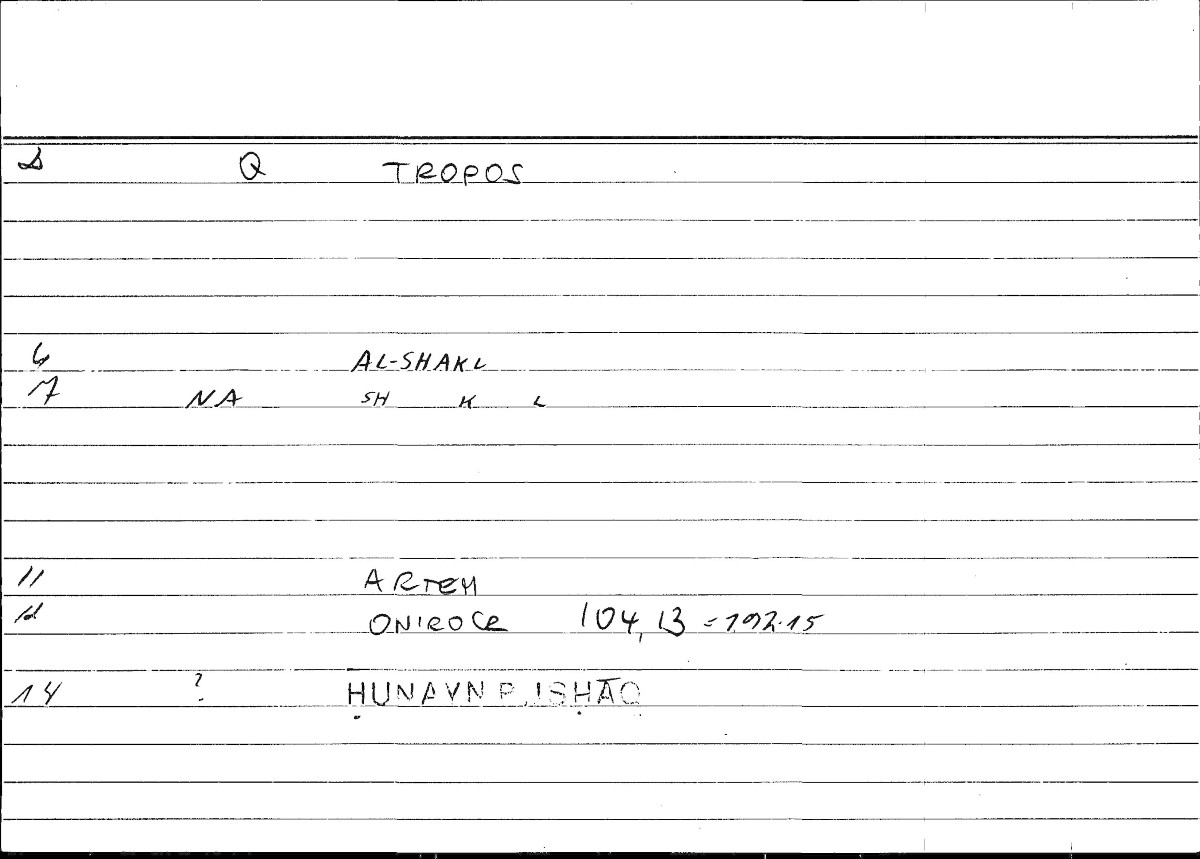 1 Q TROPOS
6 AL-SHAKL
7 NA SH K L
11 ARTEM
12 ONIROCR 104,13 = 192.15
14 ? ḤUNAYN B. ISḤĀQ